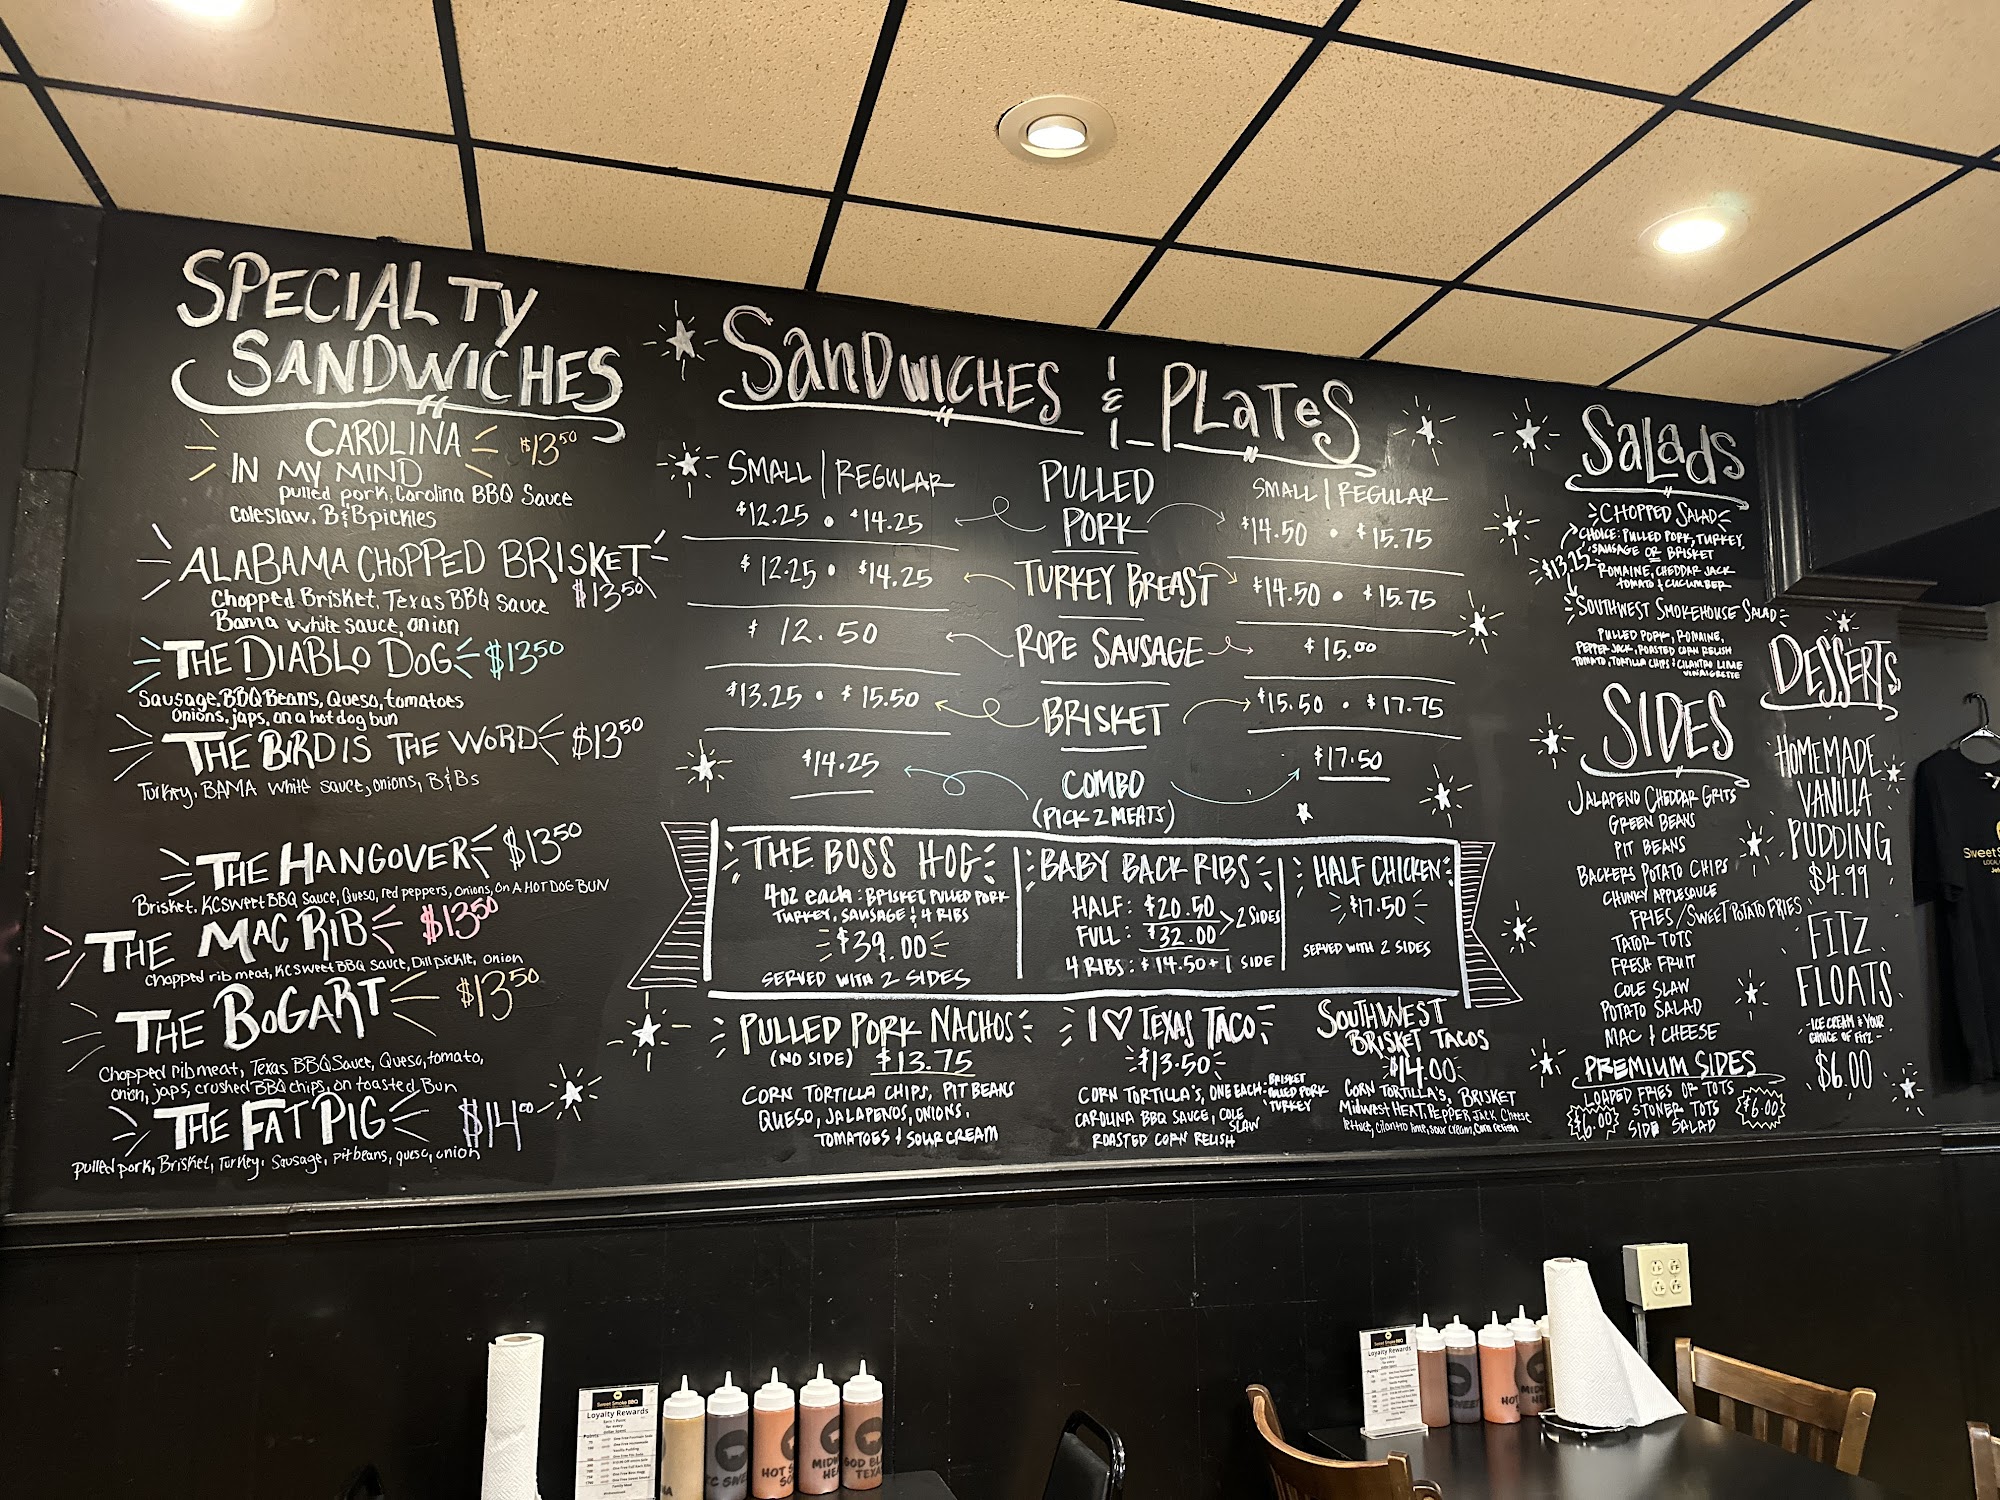 SPECIALTY
SANDWICHES
CAROLINA $13.50
IN MY MIND
pulled pork, Carolina BBQ Sauce
coleslaw, B&B pickles
ALABAMA CHOPPED BRISKET
Chopped Brisket, Texas BBQ Sauce $13.50
Bama white sauce, onion
THE DIABLO DOG $13.50
Sausage, BBQ Beans, Queso, tomatoes
Onions, japs, on a hot dog bun
THE BIRD IS THE WORD $13.50
Turkey, BAMA white sauce, onions, B&Bs
THE HANGOVER $13.50
Brisket, KC Sweet BBQ Sauce, Queso, red peppers, onions, on A HOT DOG BUN
THE MAC RIB $13.50
Chopped rib meat, KC Sweet BBQ Sauce, Dill pickle, onion
THE BOGART $13.50
Chopped rib meat, Texas BBQ Sauce, Queso, tomato,
onion, japs, crushed BBQ chips, on toasted Bun
THE FAT PIG $14.00
pulled pork, Brisket, Turkey, Sausage, pit beans, queso, onion
SANDWICHES & PLATES
SMALL | REGULAR
PULLED
PORK
SMALL | REGULAR
$12.25 • $14.25
$14.50 • $15.75
$12.25 • $14.25
TURKEY BREAST
$14.50 • $15.75
$12.50
ROPE SAUSAGE
$15.00
$13.25 • $15.50
BRISKET
$15.50 • $17.75
$14.25
COMBO
(PICK 2 MEATS)
$17.50
THE BOSS HOG
4oz each: BRISKET PULLED PORK
TURKEY, SAUSAGE & 4 RIBS
$39.00
SERVED WITH 2 SIDES
BABY BACK RIBS
HALF: $20.50
FULL: $32.00 > 2 SIDES
4 RIBS: $14.50 + 1 SIDE
HALF CHICKEN
$17.50
SERVED WITH 2 SIDES
PULLED PORK NACHOS
(NO SIDE) $13.75
CORN TORTILLA CHIPS, PIT BEANS
QUESO, JALAPENOS, ONIONS,
TOMATOES & SOUR CREAM
I ♡ TEXAS TACO
$13.50
CORN TORTILLA'S, ONE EACH - BRISKET PULLED PORK TURKEY
CAROLINA BBQ SAUCE, COLE SLAW
ROASTED CORN RELISH
SOUTHWEST
BRISKET TACOS
$14.00
CORN TORTILLA'S, BRISKET
Midwest HEAT, PEPPER JACK Cheese
lettuce, cilantro lime, sour cream, corn relish
SALADS
CHOPPED SALAD
CHOICE: PULLED PORK, TURKEY,
SAUSAGE OR BRISKET
$13.25
ROMAINE, CHEDDAR JACK
TOMATO & CUCUMBER
SOUTHWEST SMOKEHOUSE SALAD
PULLED PORK, ROMAINE,
PEPPER JACK, ROASTED CORN RELISH
TOMATO, TORTILLA CHIPS & CILANTRO LIME
VINAIGRETTE
SIDES
JALAPENO CHEDDAR GRITS
GREEN BEANS
PIT BEANS
BACKERS POTATO CHIPS
CHUNKY APPLESAUCE
FRIES/SWEET POTATO FRIES
TATOR TOTS
FRESH FRUIT
COLE SLAW
POTATO SALAD
MAC & CHEESE
PREMIUM SIDES
LOADED FRIES OR TOTS
$6.00 STONER TOTS $6.00
SIDE SALAD
DESSERTS
HOMEMADE
VANILLA
PUDDING
$4.99
FITZ
FLOATS
- ICE CREAM & YOUR
CHOICE OF FITZ -
$6.00
Sweet Smoke BBQ
Loyalty Rewards
Sweet Smoke BBQ
Loyalty Rewards